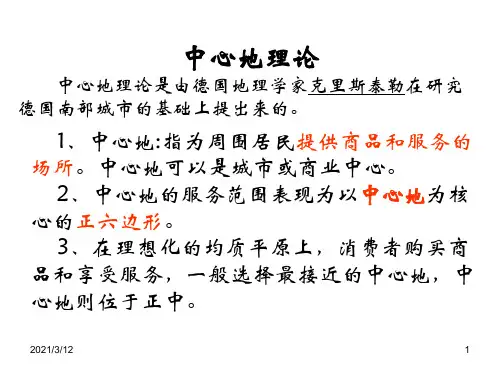 中心地理论
中心地理论是由德国地理学家克里斯泰勒在研究
德国南部城市的基础上提出来的。
1、中心地:指为周围居民提供商品和服务的
场所。中心地可以是城市或商业中心。
2、中心地的服务范围表现为以中心地为核
心的正六边形。
3、在理想化的均质平原上，消费者购买商
品和享受服务，一般选择最接近的中心地，中
心地则位于正中。
2021/3/12
1